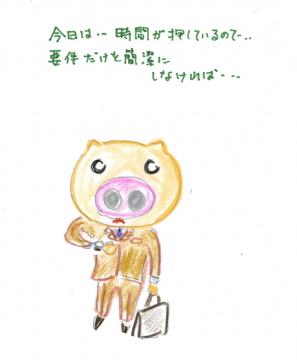 今日は‥時間が押しているので‥
要件だけを簡潔に
しなければ・・・